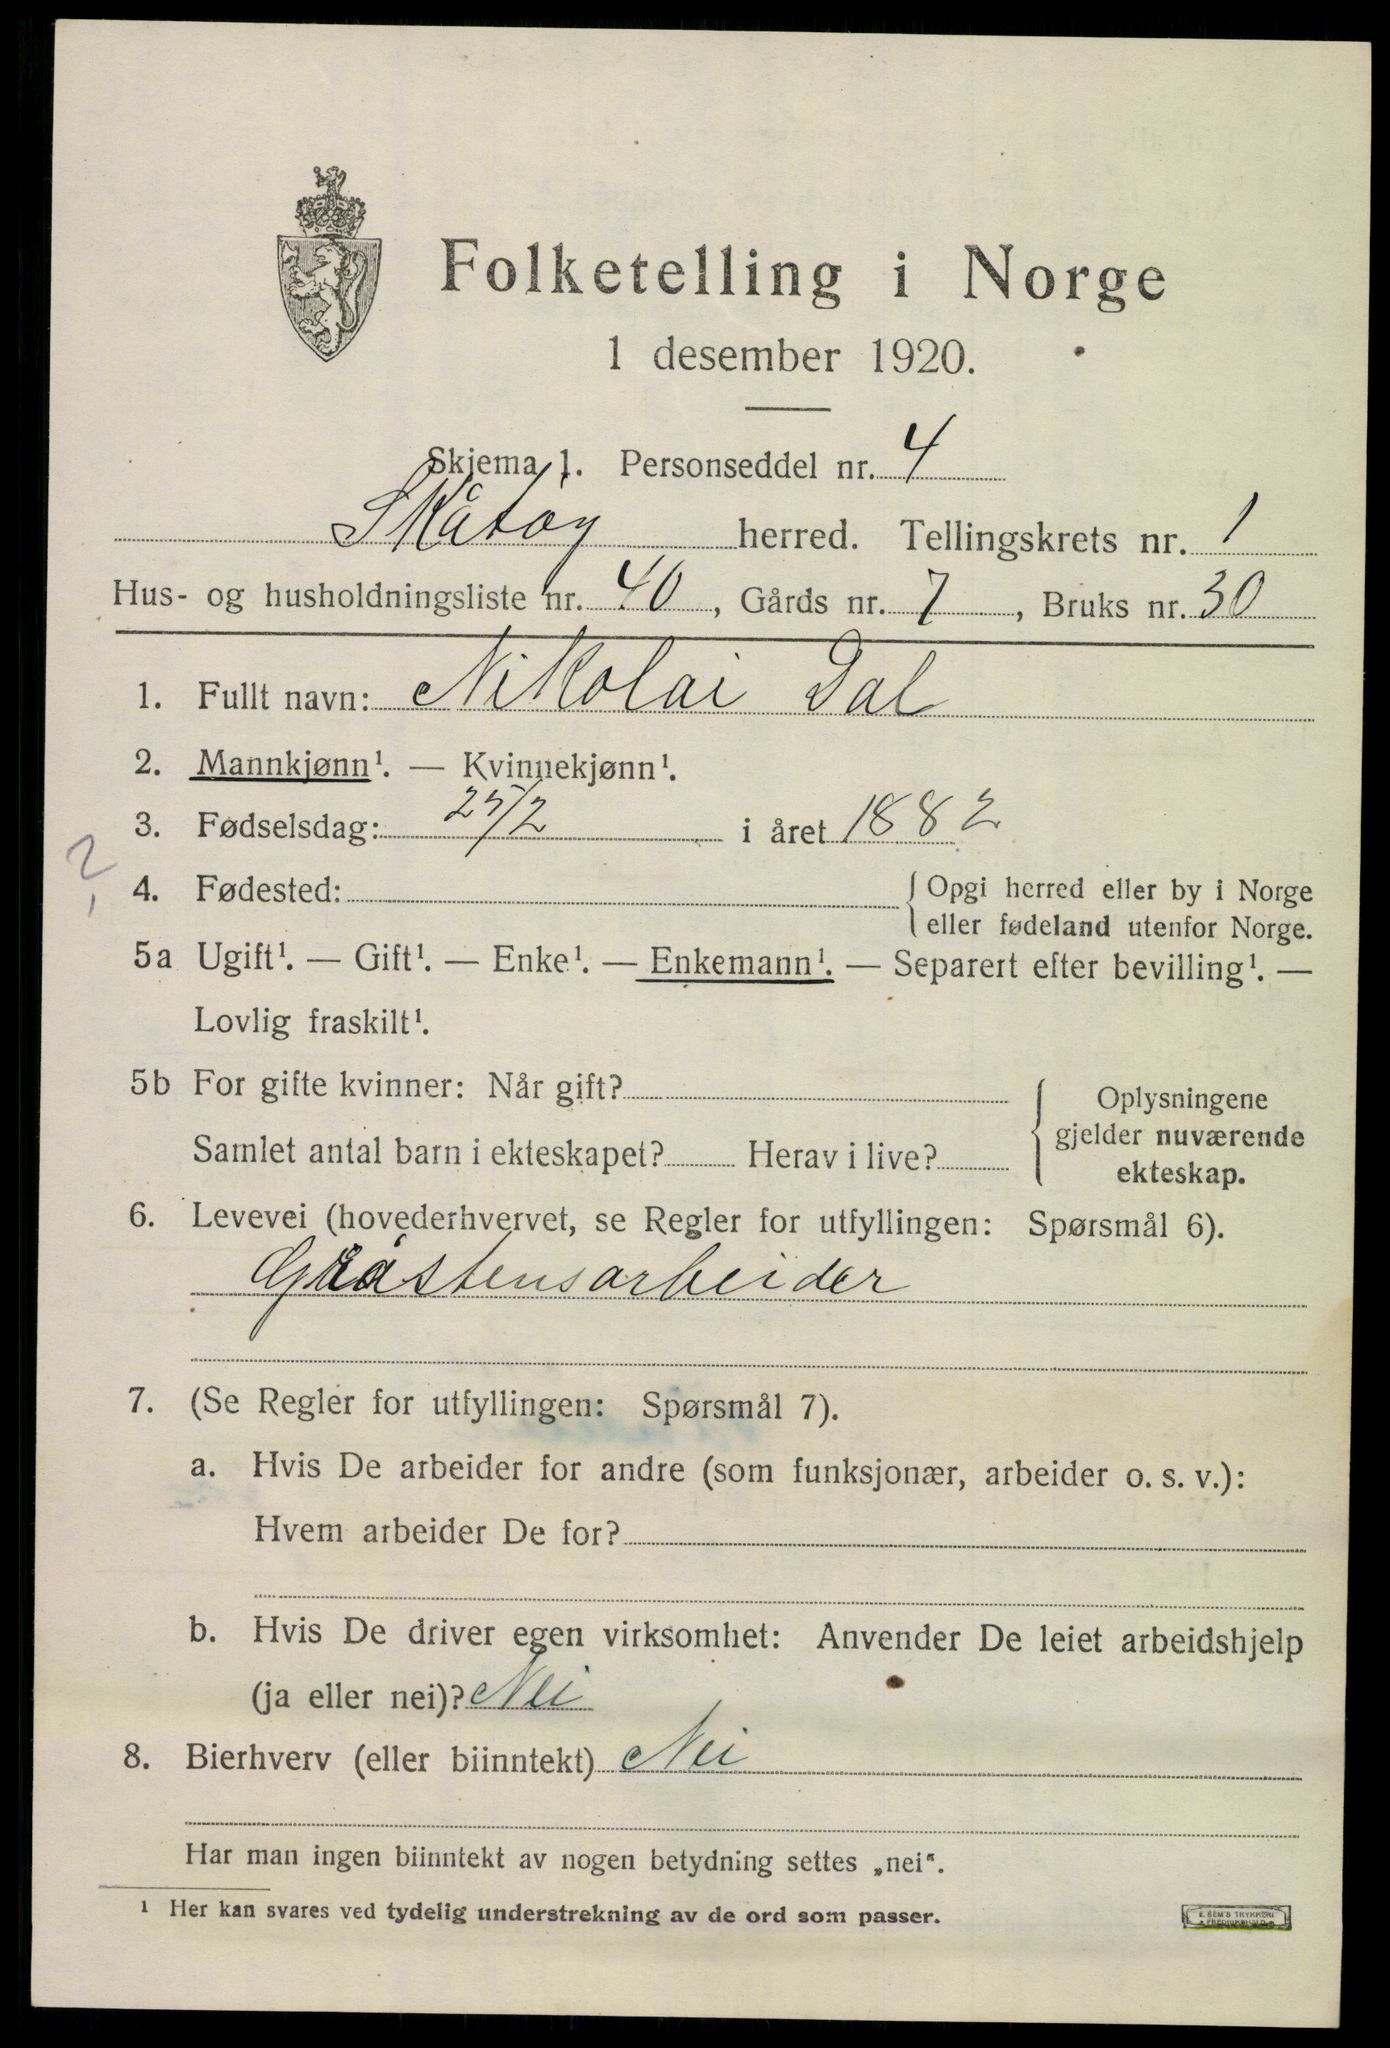 Folketelling i Norge
1 desember 1920.
Skjema 1. Personseddel nr. 4
Skåtøy herred. Tellingskrets nr. 1
Hus- og husholdningsliste nr. 40, Gårds nr. 7, Bruks nr. 30
1. Fullt navn: Nikolai Dal
2. Mannkjønn¹. — Kvinnekjønn¹.
3. Fødselsdag: 25/2 i året 1882
?
4. Fødested: { Opgi herred eller by i Norge
eller fødeland utenfor Norge.
5a Ugift¹. — Gift¹. — Enke¹. — Enkemann¹. — Separert efter bevilling¹. —
Lovlig fraskilt¹.
5b For gifte kvinner: Når gift?
Samlet antal barn i ekteskapet? Herav i live?
{ Oplysningene
gjelder nuværende
ekteskap.
6. Levevei (hovederhvervet, se Regler for utfyllingen: Spørsmål 6).
Gråstensarbeider
7. (Se Regler for utfyllingen: Spørsmål 7).
a. Hvis De arbeider for andre (som funksjonær, arbeider o. s. v.):
Hvem arbeider De for?
b. Hvis De driver egen virksomhet: Anvender De leiet arbeidshjelp
(ja eller nei)? Nei
8. Bierhverv (eller biinntekt) Nei
Har man ingen biinntekt av nogen betydning settes „nei“.
¹ Her kan svares ved tydelig understrekning av de ord som passer.
E. SEM'S TRYKKERI
FREDRIKSHALD